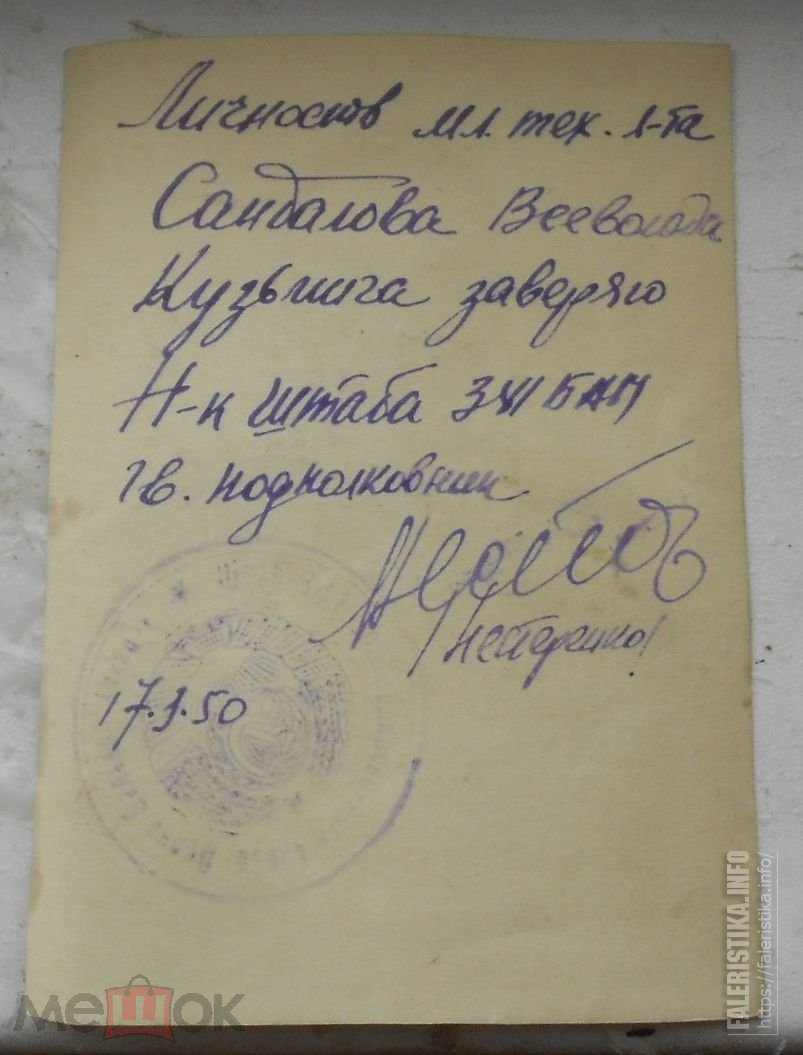 Личность мл. тех. л-та
Сандалова Всеволода
Кузьмича заверяю
Н-к штаба БАП
гв. подполковник
Нестеренко
17.1.50
МЕШОК
FALERISTIKA.INFO
https://faleristika.info/